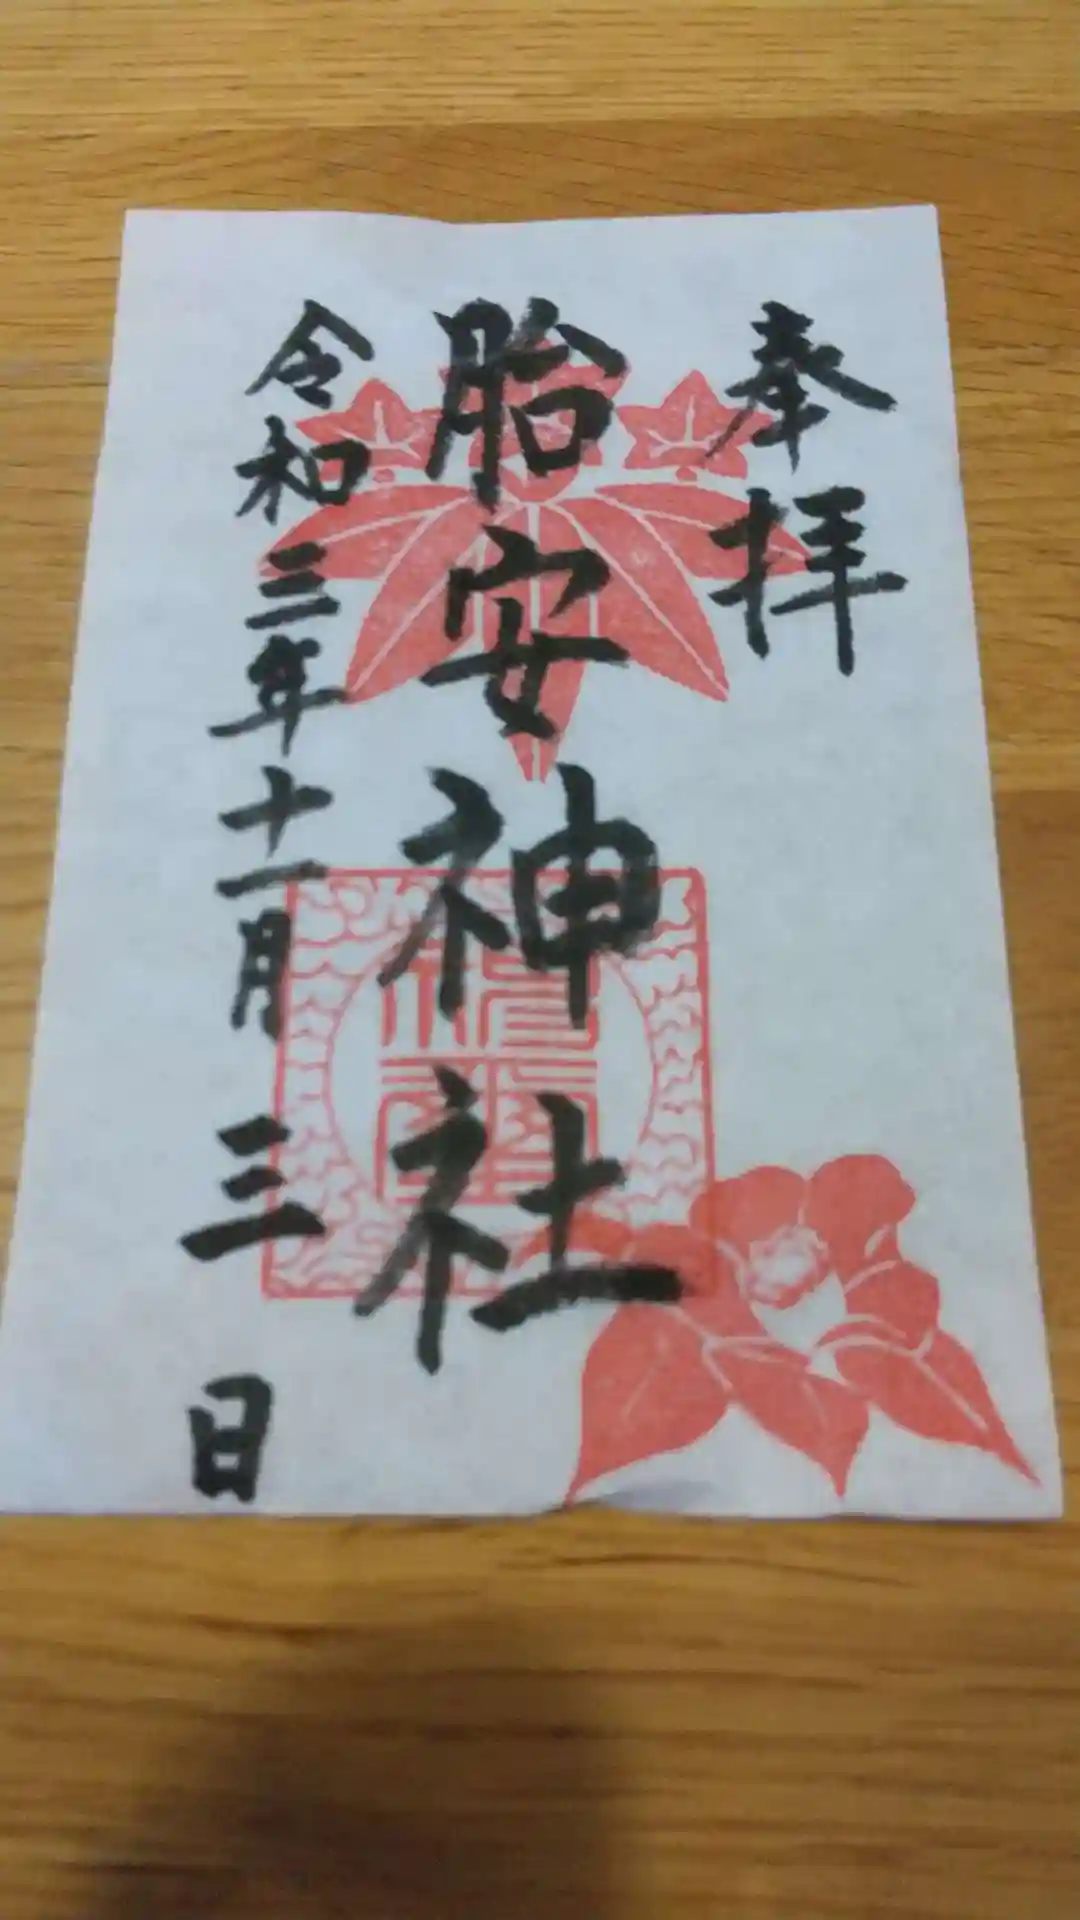 奉拝
胎安神社
令和三年十一月三日